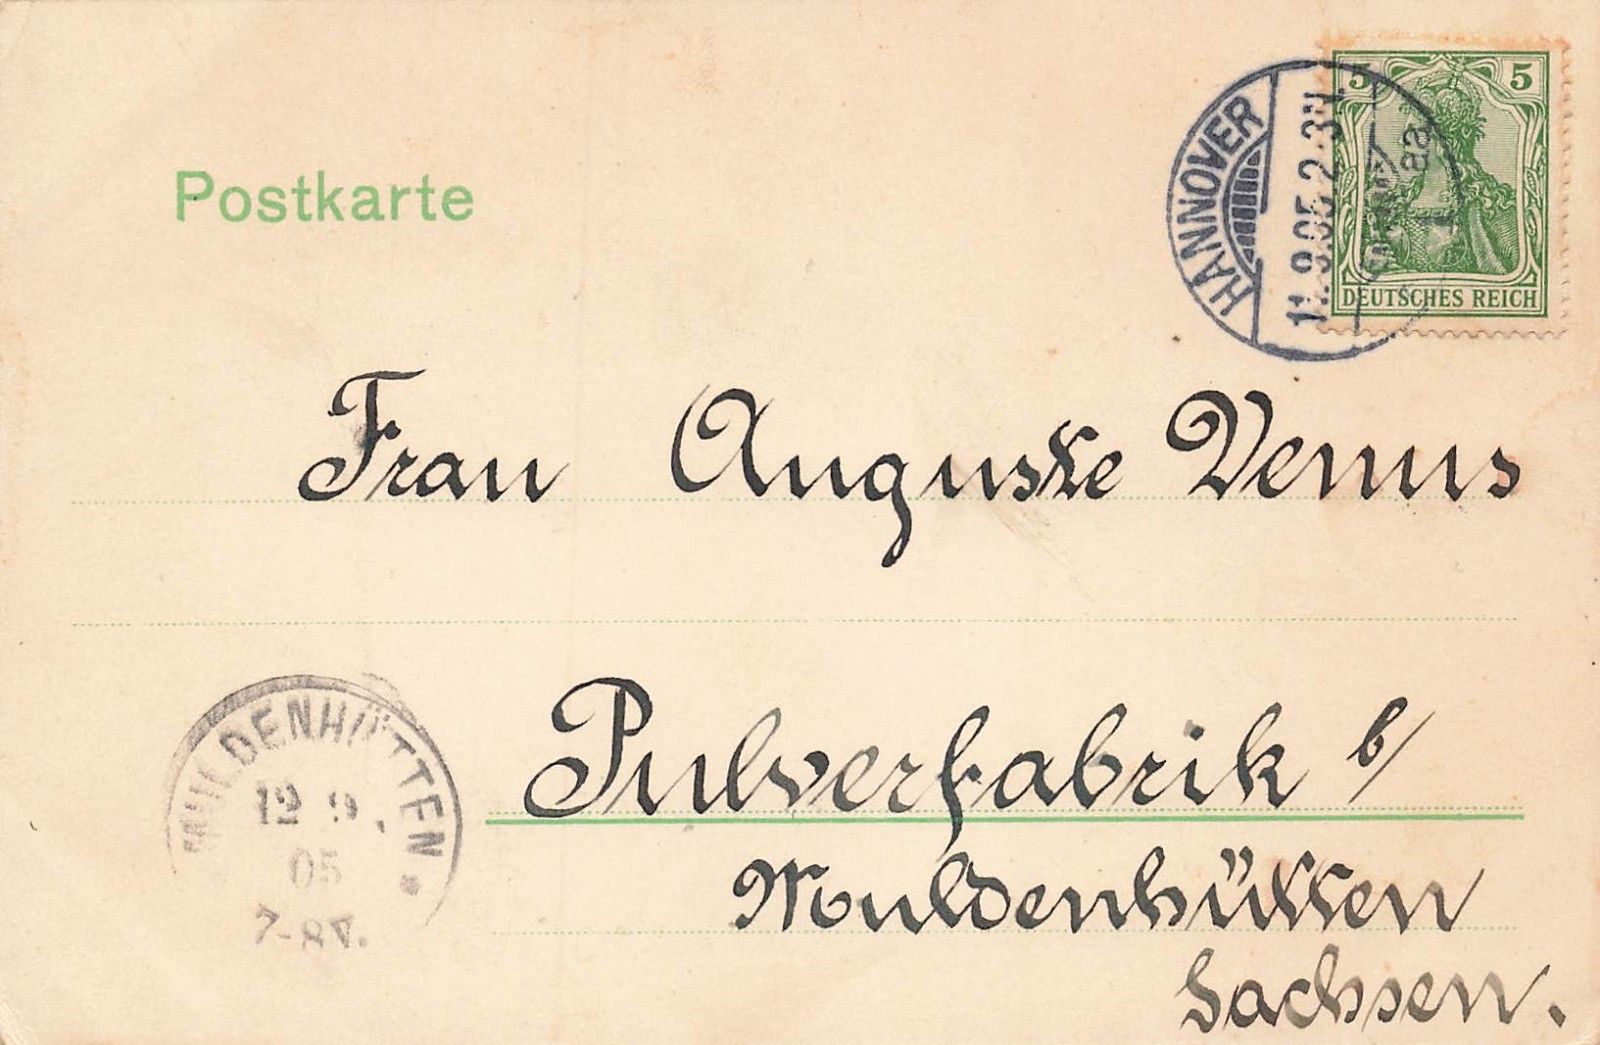 Postkarte
5 5
DEUTSCHES REICH
HANNOVER
11.9.05. 2-3N.
Frau Auguste Venus
Pulverfabrik b/
Muldenhütten
Sachsen.
MULDENHÜTTEN
12 9
05
7-8V.